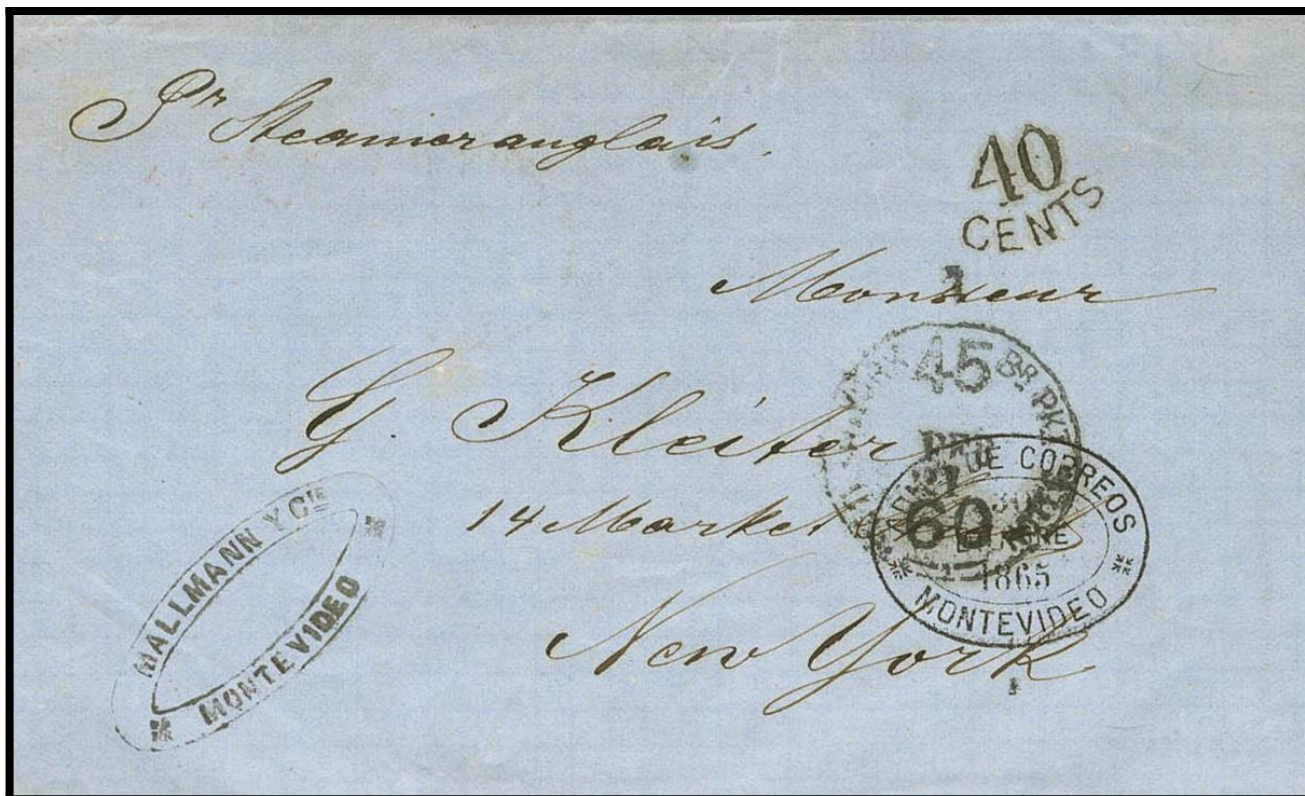 Pr Steamer anglais.
40
CENTS
Monsieur
G. Kleiter
14 Market
New York
MALLMANN Y CIE
MONTEVIDEO
45 BR PKT
60
DE CORREOS
1865
MONTEVIDEO